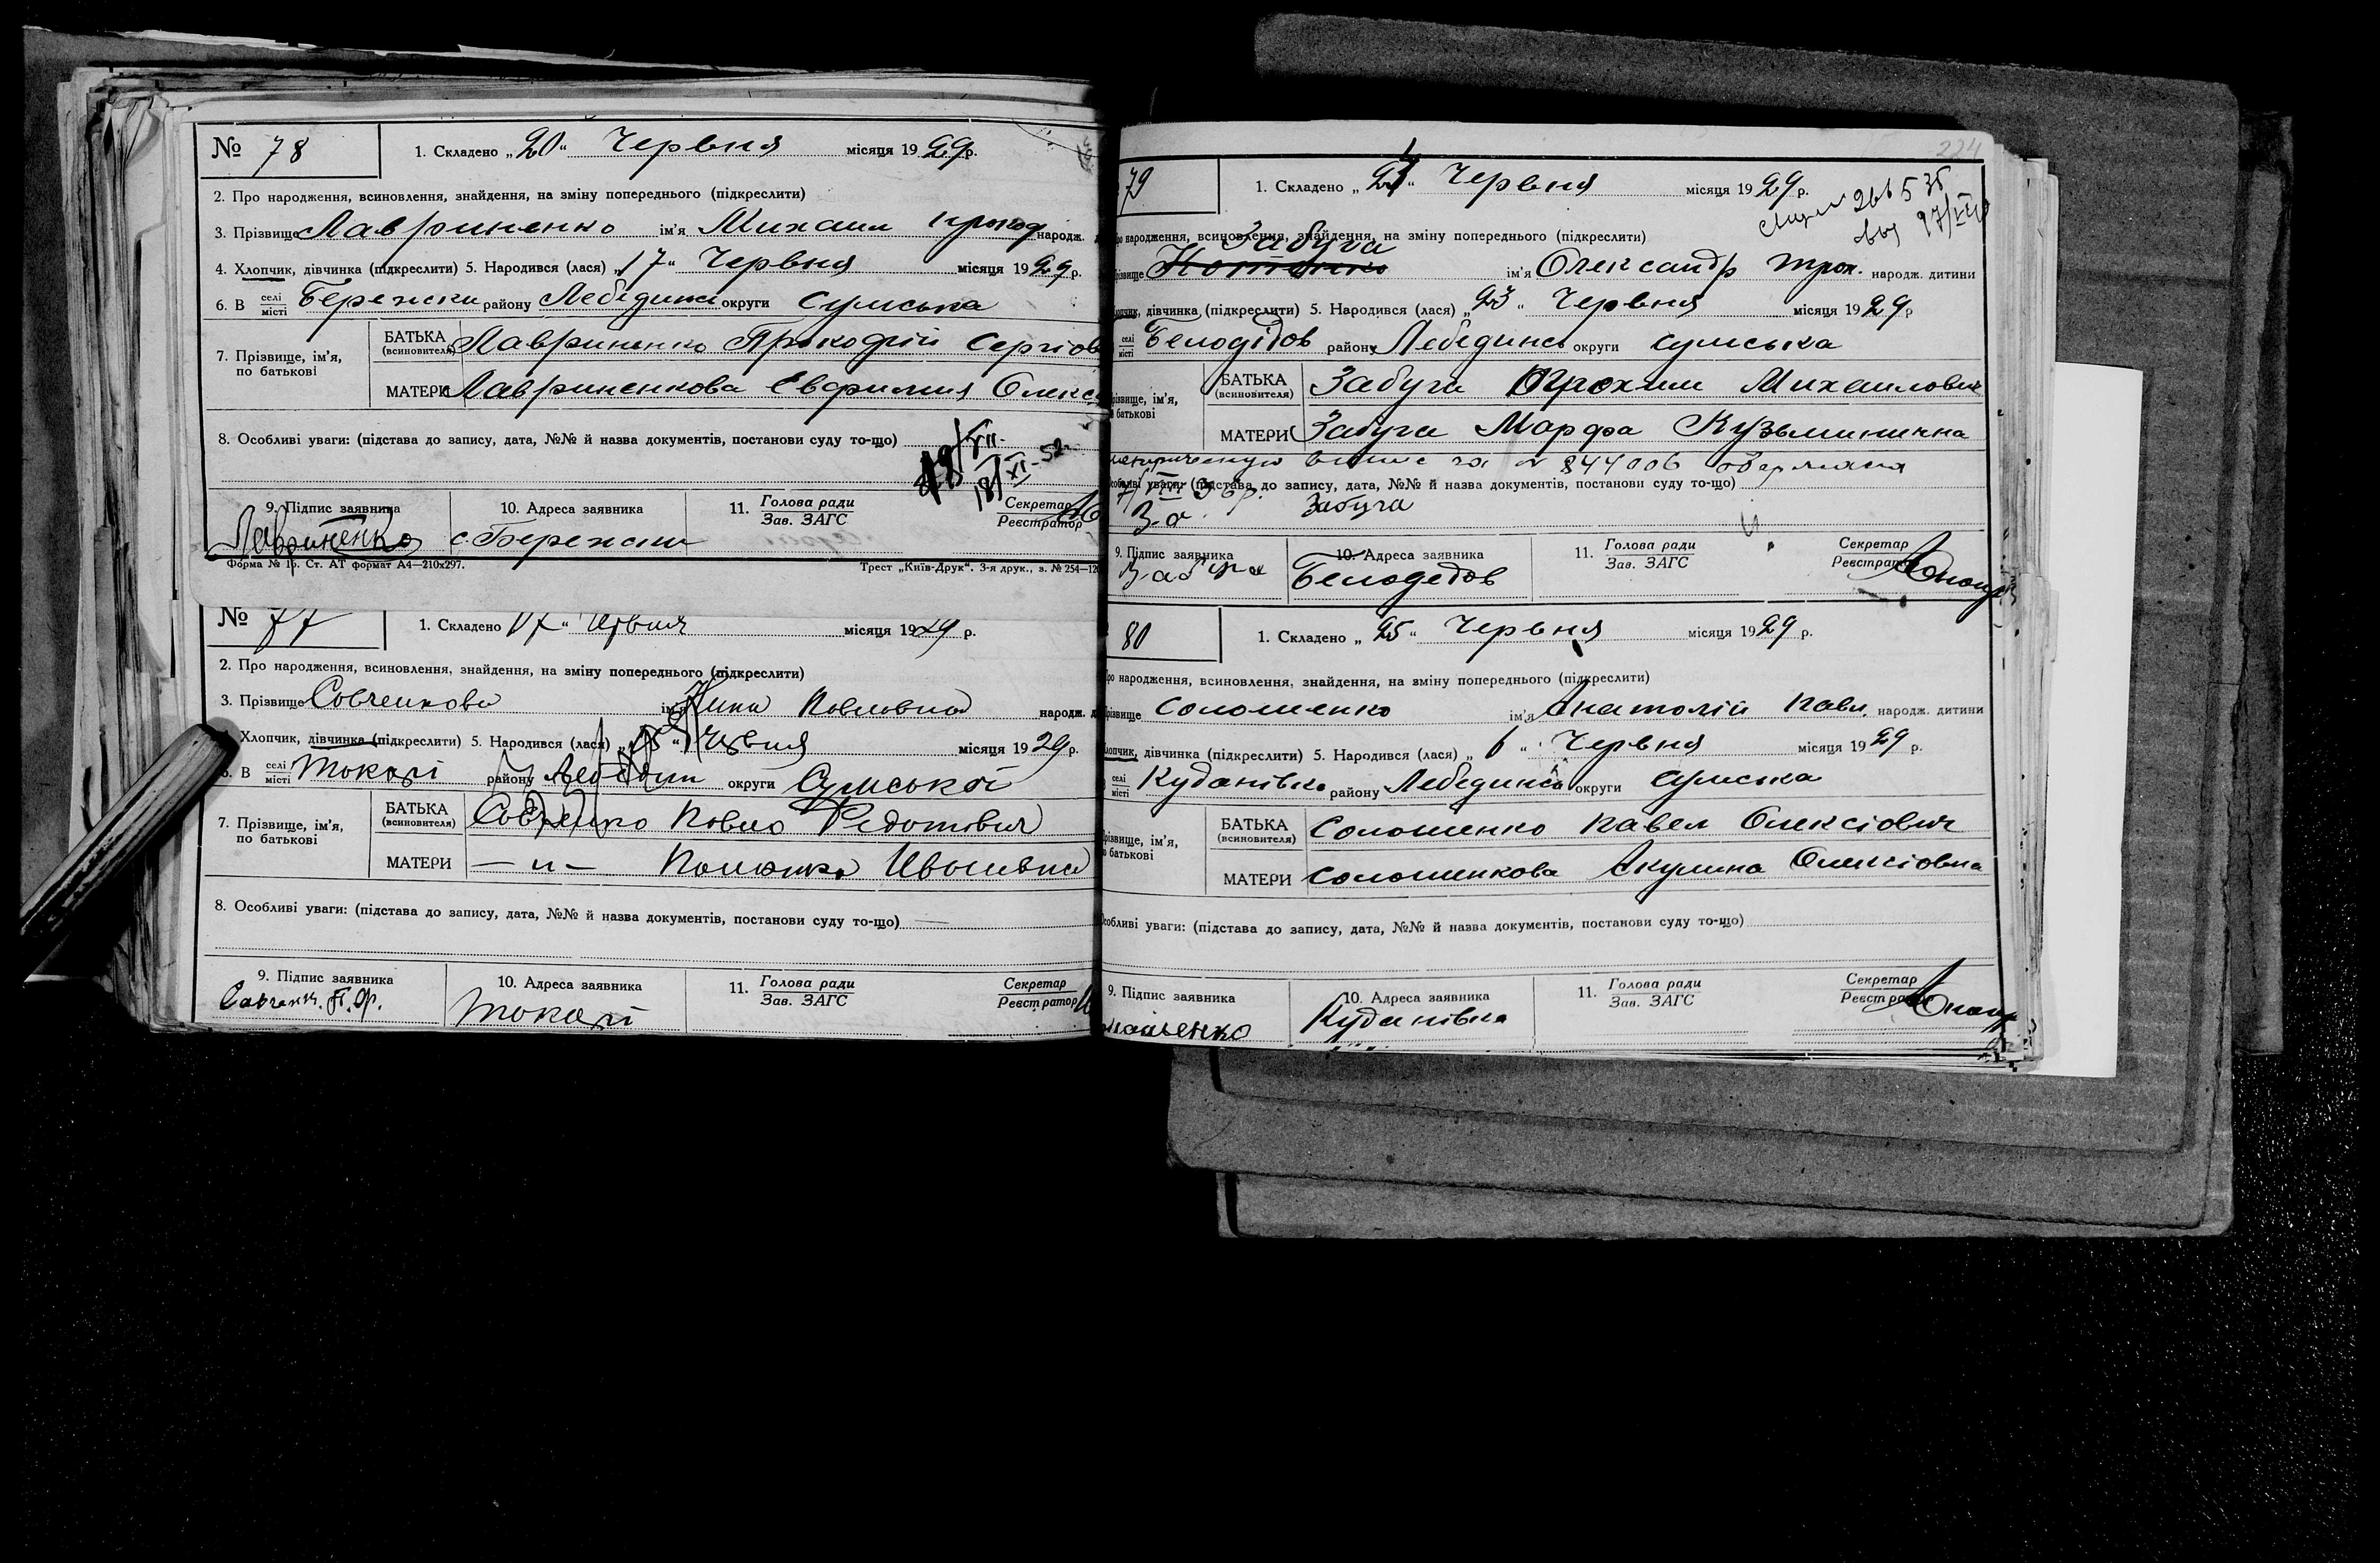 № 78
1. Складено „20“ Червня місяця 1929р.
2. Про народження, всиновлення, знайдення, на зміну попереднього (підкреслити)
3. Прізвище Лавриненко ім'я Михаил Прокоф народж.
4. Хлопчик, дівчинка (підкреслити) 5. Народився (лася) „17“ Червня місяця 1929р.
6. В селі місті Бережки району Лебединс округи Сумська
7. Прізвище, ім'я, по батькові
БАТЬКА (всиновителя) Лавриненко Прокофій Сергіов
МАТЕРИ Лавриненкова Евфимия Олекс
8. Особливі уваги: (підстава до запису, дата, №№ й назва документів, постанови суду то-що)
18/XI-52
9. Підпис заявника
10. Адреса заявника
11. Голова ради
Зав. ЗАГС
Секретар
Реєстратор
Лавриненко с. Бережки
Форма № 1р. Ст. АТ формат А4—210х297.
Трест „Київ-Друк“. 3-я друк., з. № 254—120
№ 77
1. Складено 17“ Червня місяця 1929 р.
2. Про народження, всиновлення, знайдення, на зміну попереднього (підкреслити)
3. Прізвище Савченкова ім'я Нина Павловна народж.
Хлопчик, дівчинка (підкреслити) 5. Народився (лася) „15“ Червня місяця 1929р.
6. В селі місті Токарі району Лебедин округи Сумської
7. Прізвище, ім'я, по батькові
БАТЬКА (всиновителя) Савченко Павло Федотович
МАТЕРИ —„— Ивановна
8. Особливі уваги: (підстава до запису, дата, №№ й назва документів, постанови суду то-що)
9. Підпис заявника
10. Адреса заявника
11. Голова ради
Зав. ЗАГС
Секретар
Реєстратор
Савченк. П. Ф.
Токарі
224
79
1. Складено „24“ Червня місяця 1929 р.
266535
народження, всиновлення, знайдення, на зміну попереднього (підкреслити)
Забуга
ім'я Олександр Трох. народж. дитини
дівчинка (підкреслити) 5. Народився (лася) „23“ Червня місяця 1929р
селі місті Белодідов району Лебединс округи Сумська
ім'я, батькові
БАТЬКА (всиновителя) Забуга Трохим Михаилович
МАТЕРИ Забуга Марфа Кузьминична
№ 844006
уваги: (підстава до запису, дата, №№ й назва документів, постанови суду то-що)
Забуга
9. Підпис заявника
10. Адреса заявника
11. Голова ради
Зав. ЗАГС
Секретар
Реєстратор
Забуга
Белодедов
80
1. Складено „25“ Червня місяця 1929 р.
народження, всиновлення, знайдення, на зміну попереднього (підкреслити)
Солошенко ім'я Анатолій Павл. народж. дитини
дівчинка (підкреслити) 5. Народився (лася) „6“ Червня місяця 1929 р.
селі місті Куданівка району Лебединс округи Сумська
ім'я, батькові
БАТЬКА (всиновителя) Солошенко Павел Олексіович
МАТЕРИ Солошенкова Акулина Олексіовна
уваги: (підстава до запису, дата, №№ й назва документів, постанови суду то-що)
9. Підпис заявника
10. Адреса заявника
11. Голова ради
Зав. ЗАГС
Секретар
Реєстратор
Куданівка